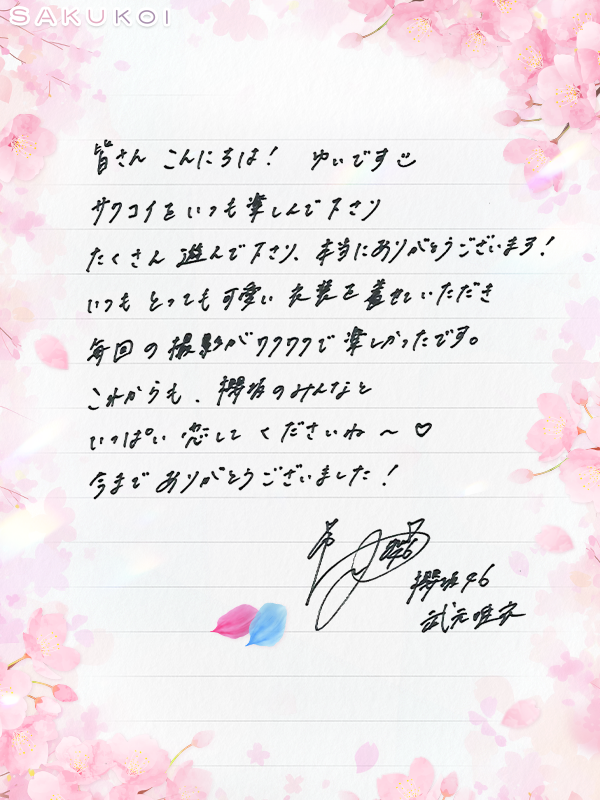 SAKUKOI
皆さん こんにちは! ゆいです
サクコイをいつも楽しんで下さり
たくさん遊んで下さり、本当にありがとうございます!
いつもとっても可愛い衣装を着せていただき
毎回の撮影がワクワクで楽しかったです。
これからも、櫻坂のみんなと
いっぱい恋してくださいね〜♡
今までありがとうございました!
櫻坂46
武元唯衣